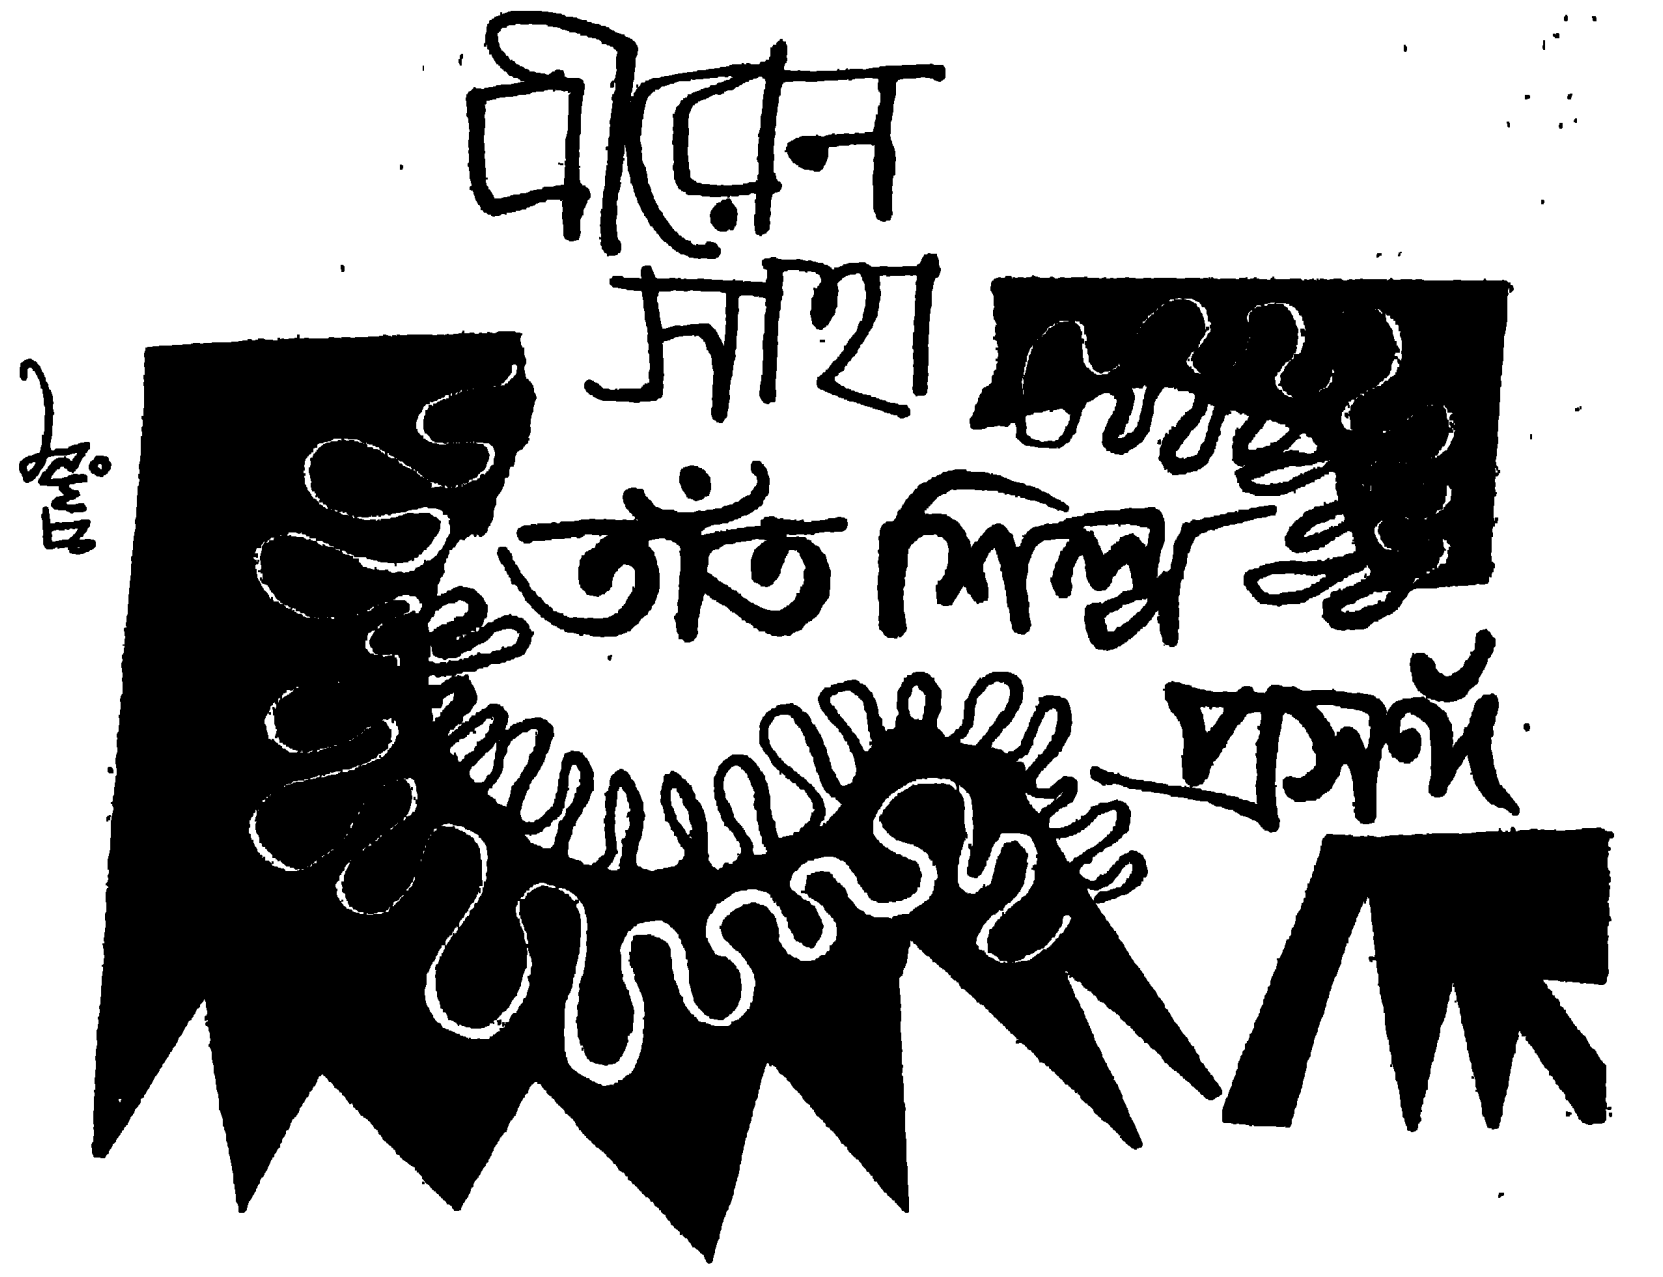 বীরেন
সাহা
তাঁত শিল্প
প্রসঙ্গঁ